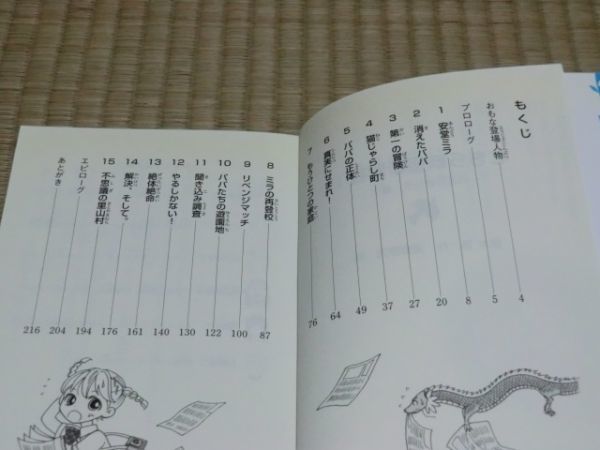 もくじ
おもな登場人物 4
プロローグ 5
1 安堂ミラ 8
2 消えたパパ 20
3 第一の冒険 27
4 猫じゃらし町 37
5 パパの正体 49
6 真実にせまれ! 64
7 もうひとつの 76
8 ミラの再登校 87
9 リベンジマッチ 100
10 パパたちの遊園地 122
11 聞き込み調査 130
12 やるしかない! 140
13 絶体絶命 161
14 解決、そして。 176
15 不思議の里山村 194
エピローグ 204
あとがき 216